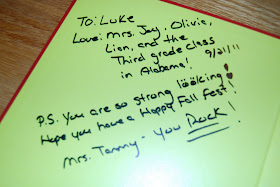 To: Luke
Love: Mrs. Jay, Olivia,
Lian, and the
Third grade class
in Alabama! 9/21/11
P.S. You are so strong löölcing!
Hope you have a Happy Fall Fest!
Mrs. Tammy - You Rock!